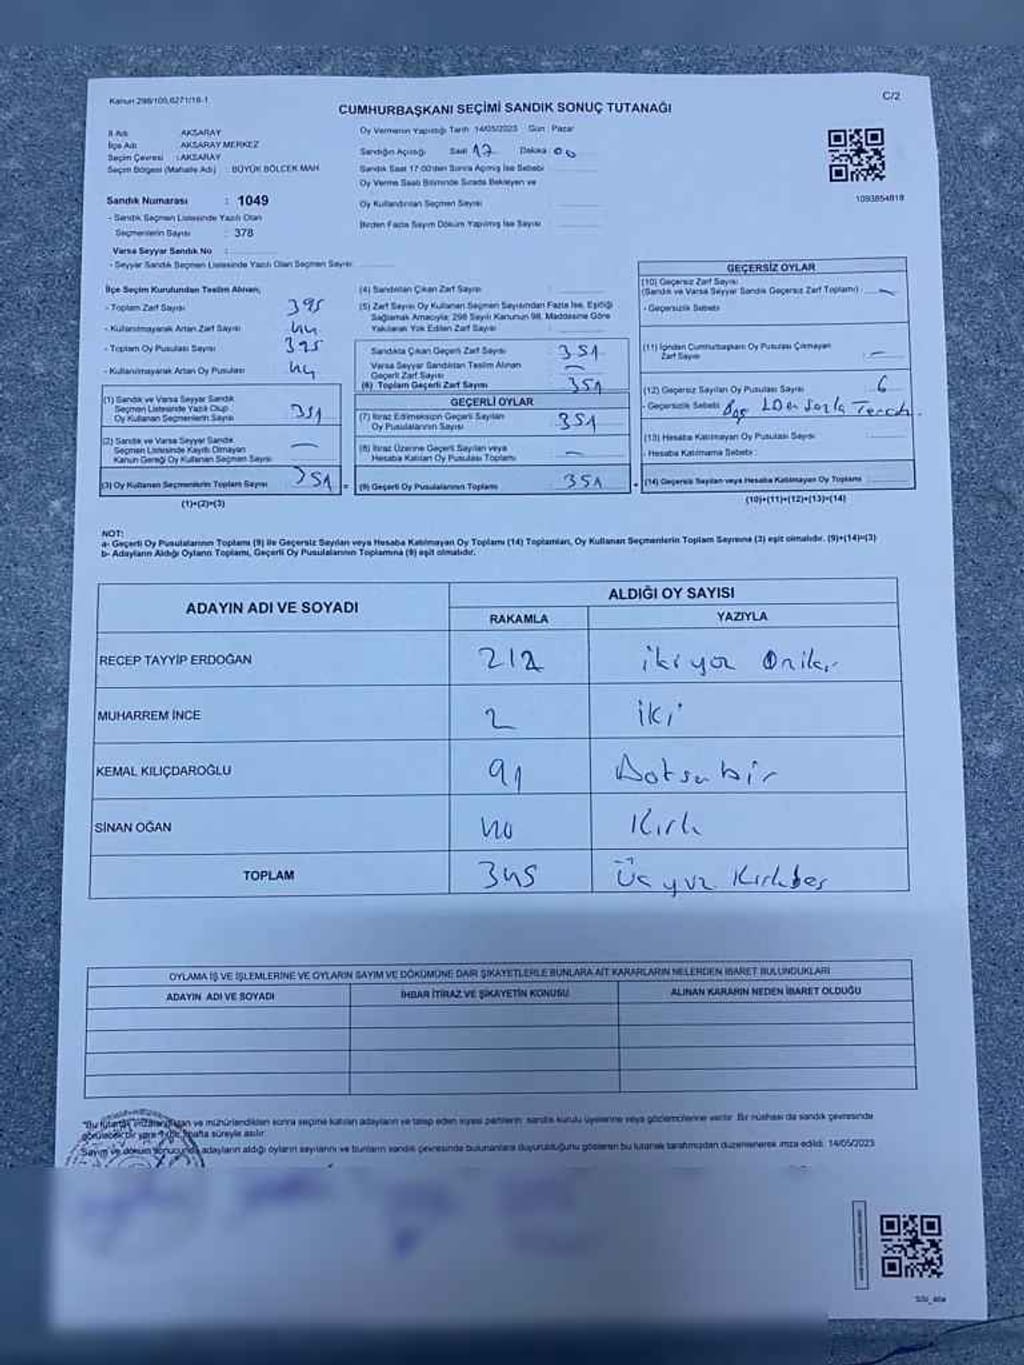 Kanun 298/100,6271/16-1
C/2
CUMHURBAŞKANI SEÇİMİ SANDIK SONUÇ TUTANAĞI
İl Adı AKSARAY
İlçe Adı AKSARAY MERKEZ
Seçim Çevresi : AKSARAY
Seçim Bölgesi (Mahalle Adı) : BÜYÜK BÖLCEK MAH
Sandık Numarası : 1049
- Sandık Seçmen Listesinde Yazılı Olan
Seçmenlerin Sayısı : 378
Varsa Seyyar Sandık No :
- Seyyar Sandık Seçmen Listesinde Yazılı Olan Seçmen Sayısı
Oy Vermenin Yapıldığı Tarih 14/05/2023 Gün : Pazar
Sandığın Açılışı Saat 17 Dakika 00
Sandık Saat 17:00'den Sonra Açılmış İse Sebebi
Oy Verme Saati Bitiminde Sırada Bekleyen ve
Oy Kullandırılan Seçmen Sayısı
Birden Fazla Sayım Döküm Yapılmış İse Sayısı
1093854818
İlçe Seçim Kurulundan Teslim Alınan;
- Toplam Zarf Sayısı 395
- Kullanılmayarak Artan Zarf Sayısı 44
- Toplam Oy Pusulası Sayısı 395
- Kullanılmayarak Artan Oy Pusulası 44
(1) Sandık ve Varsa Seyyar Sandık
Seçmen Listesinde Yazılı Olup
Oy Kullanan Seçmenlerin Sayısı 351
(2) Sandık ve Varsa Seyyar Sandık
Seçmen Listesinde Kayıtlı Olmayan
Kanun Gereği Oy Kullanan Seçmen Sayısı —
(3) Oy Kullanan Seçmenlerin Toplam Sayısı 351
(1)+(2)=(3)
(4) Sandıktan Çıkan Zarf Sayısı
(5) Zarf Sayısı Oy Kullanan Seçmen Sayısından Fazla İse, Eşitliği
Sağlamak Amacıyla; 298 Sayılı Kanunun 98. Maddesine Göre
Yakılarak Yok Edilen Zarf Sayısı
Sandıkta Çıkan Geçerli Zarf Sayısı 351
Varsa Seyyar Sandıktan Teslim Alınan
Geçerli Zarf Sayısı —
(6) Toplam Geçerli Zarf Sayısı 351
GEÇERLİ OYLAR
(7) İtiraz Edilmeksizin Geçerli Sayılan
Oy Pusulalarının Sayısı 351
(8) İtiraz Üzerine Geçerli Sayılan veya
Hesaba Katılan Oy Pusulası Toplamı —
= (9) Geçerli Oy Pusulalarının Toplamı 351
GEÇERSİZ OYLAR
(10) Geçersiz Zarf Sayısı
(Sandık ve Varsa Seyyar Sandık Geçersiz Zarf Toplamı) —
- Geçersizlik Sebebi
(11) İçinden Cumhurbaşkanı Oy Pusulası Çıkmayan
Zarf Sayısı —
(12) Geçersiz Sayılan Oy Pusulası Sayısı 6
- Geçersizlik Sebebi
(13) Hesaba Katılmayan Oy Pusulası Sayısı
- Hesaba Katılmama Sebebi :
+ (14) Geçersiz Sayılan veya Hesaba Katılmayan Oy Toplamı
(10)+(11)+(12)+(13)=(14)
NOT:
a- Geçerli Oy Pusulalarının Toplamı (9) ile Geçersiz Sayılan veya Hesaba Katılmayan Oy Toplamı (14) Toplamları, Oy Kullanan Seçmenlerin Toplam Sayısına (3) eşit olmalıdır. (9)+(14)=(3)
b- Adayların Aldığı Oyların Toplamı, Geçerli Oy Pusulalarının Toplamına (9) eşit olmalıdır.
ADAYIN ADI VE SOYADI ALDIĞI OY SAYISI
RAKAMLA YAZIYLA
RECEP TAYYİP ERDOĞAN 212 ikiyüz Oniki
MUHARREM İNCE 2 iki
KEMAL KILIÇDAROĞLU 91 Doksanbir
SİNAN OĞAN 40 Kırk
TOPLAM 345 Üçyüz Kırkbeş
OYLAMA İŞ VE İŞLEMLERİNE VE OYLARIN SAYIM VE DÖKÜMÜNE DAİR ŞİKAYETLERLE BUNLARA AİT KARARLARIN NELERDEN İBARET BULUNDUKLARI
ADAYIN ADI VE SOYADI İHBAR İTİRAZ VE ŞİKAYETİN KONUSU ALINAN KARARIN NEDEN İBARET OLDUĞU
"Bu tutanak imzalandıktan ve mühürlendikten sonra seçime katılan adayların ve talep eden siyasi partilerin sandık kurulu üyelerine veya gözlemcilerine verilir. Bir nüshası da sandık çevresinde
görülecek bir yere 1 hafta süreyle asılır.
Sayım ve döküm sonucunda adayların aldığı oyların sayılarını ve bunların sandık çevresinde bulunanlara duyurulduğunu gösteren bu tutanak tarafımızdan düzenlenerek imza edildi. 14/05/2023